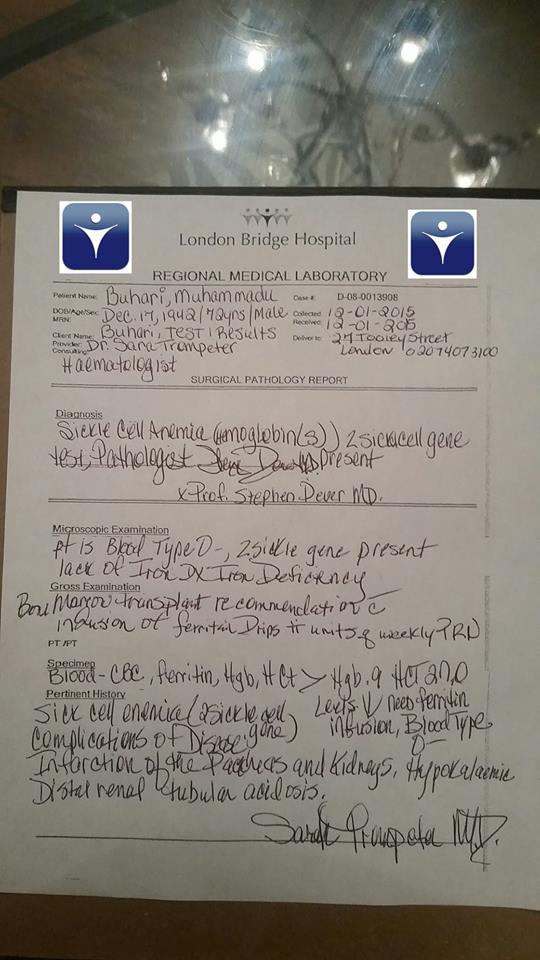 London Bridge Hospital
REGIONAL MEDICAL LABORATORY
Patient Name: Buhari, Muhammadu
Case #: D-08-0013908
DOB/Age/Sec: Dec. 17, 1942/72yrs/Male
Collected: 12-01-2015
MRN:
Received: 12-01-2015
Client Name: Buhari, TEST 1 Results
Deliver to: 27 Tooley Street
Provider: Dr. Sara Trompeter
London 02074073100
Consulting
Haematologist
SURGICAL PATHOLOGY REPORT
Diagnosis
Sickle Cell Anemia (Hmoglobin(s)) 2 sickacell gene
test, Pathologist present
x Prof. Stephen Dever MD.
Microscopic Examination
pt is Blood Type O-, 2 sickle gene present
lack of Iron DX Iron Deficiency
Gross Examination
Bone Marrow transplant recommendation c
infusion of ferritin Drips II units q weekly PRN
PT /PT
Specimen
Blood- CBC, ferritin, Hgb, HCt > Hgb. 9 HCT 27.0
Pertinent History
Levels ↓ need ferritin
Sick cell anemica (2 sickle cell gene)
infusion, Blood Type
O-
Complications of Disease;
Infarction of the Pancreas and Kidneys, Hypokalaemic
Distal renal tubular acidosis.
Sarah Trompeter M.D.